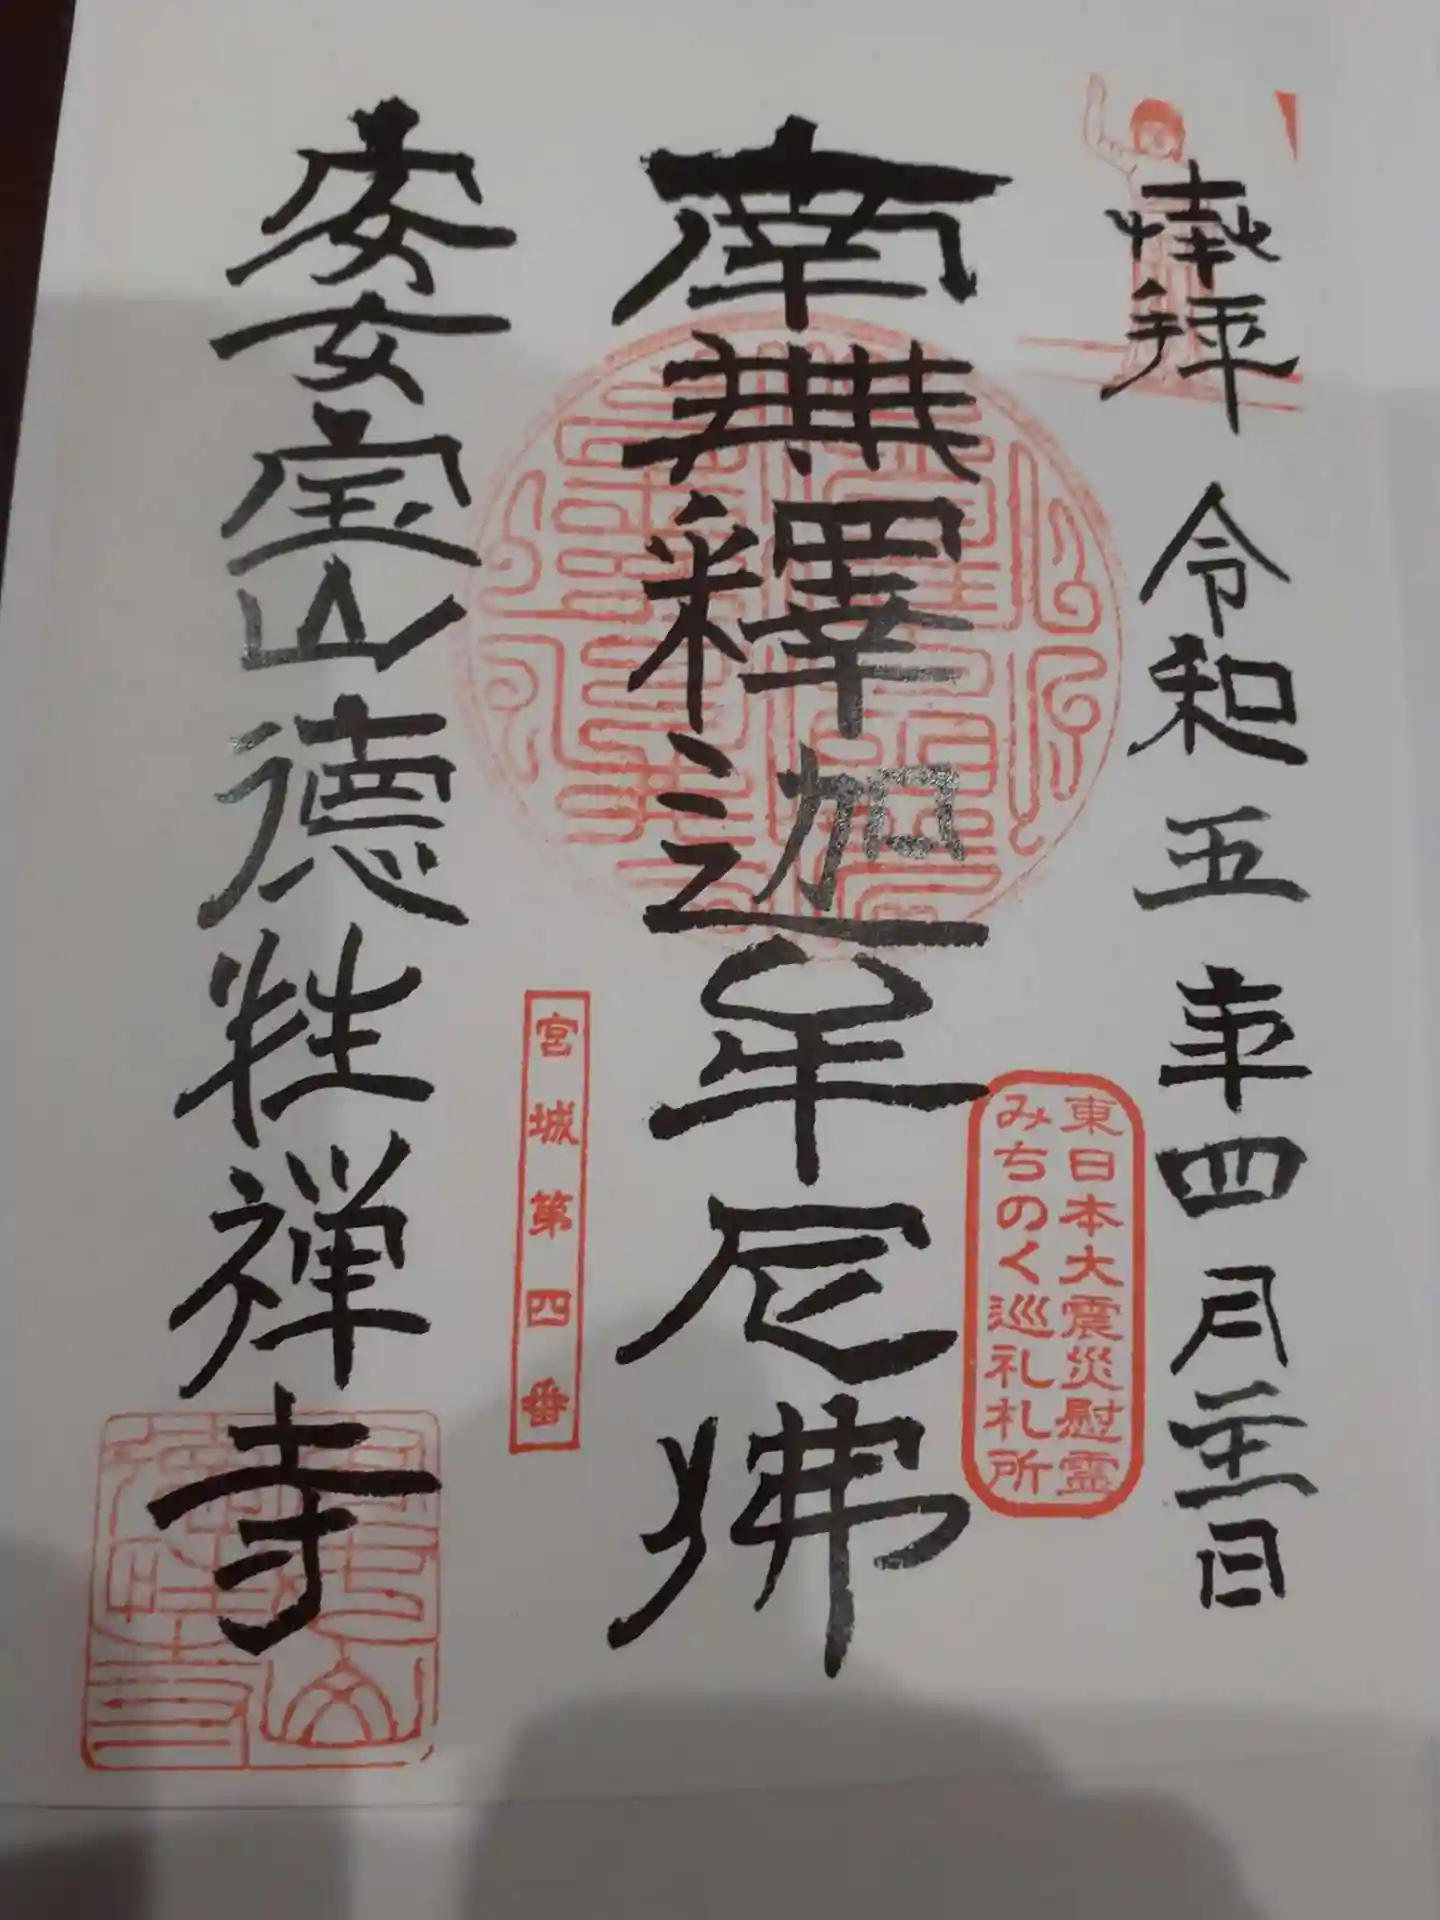 奉拝 令和五年四月 日
南無釋迦牟尼佛
宝山徳性禅寺
東日本大震災慰霊
みちのく巡礼札所
宮城第四番